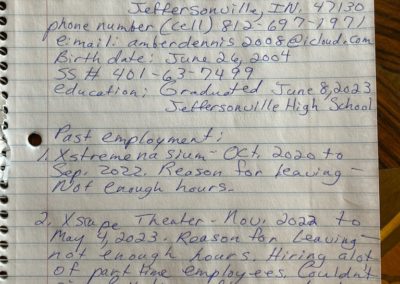 Jeffersonville, IN. 47130
phone number (cell) 812-697-1971
e-mail: amberdennis2008@icloud.com
Birth date: June 26, 2004
SS# 401-63-7499
education: Graduated June 8, 2023
Jeffersonville High School
Past employment:
1. Xstremenasium - Oct. 2020 to
Sep. 2022. Reason for Leaving -
Not enough hours.
2. Xscape Theater - Nov. 2022 to
May 4, 2023. Reason for Leaving -
not enough hours. Hiring alot
of part time employees. Couldn't